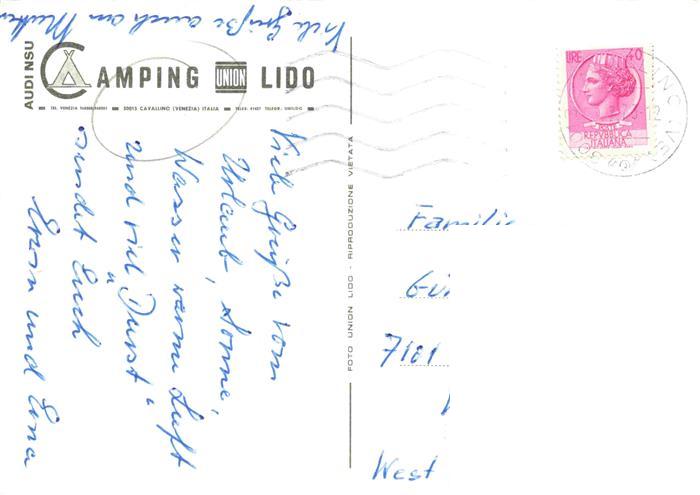 Viele Grüße auch an Mutter
AUDI NSU
CAMPING UNION LIDO
TEL. VENEZIA 30013 CAVALLINO (VENEZIA) ITALIA TELEX. 41407 TELEGR. UNILIDO
Viele Grüße vom
Urlaub, Sonne,
Wasser warme Luft
und viel "Durst"
sendet Euch
Erwin und Erna
FOTO UNION LIDO - RIPRODUZIONE VIETATA
LIRE 40
POSTE
REPVBBLICA
ITALIANA
Familie
Gü
7181
West